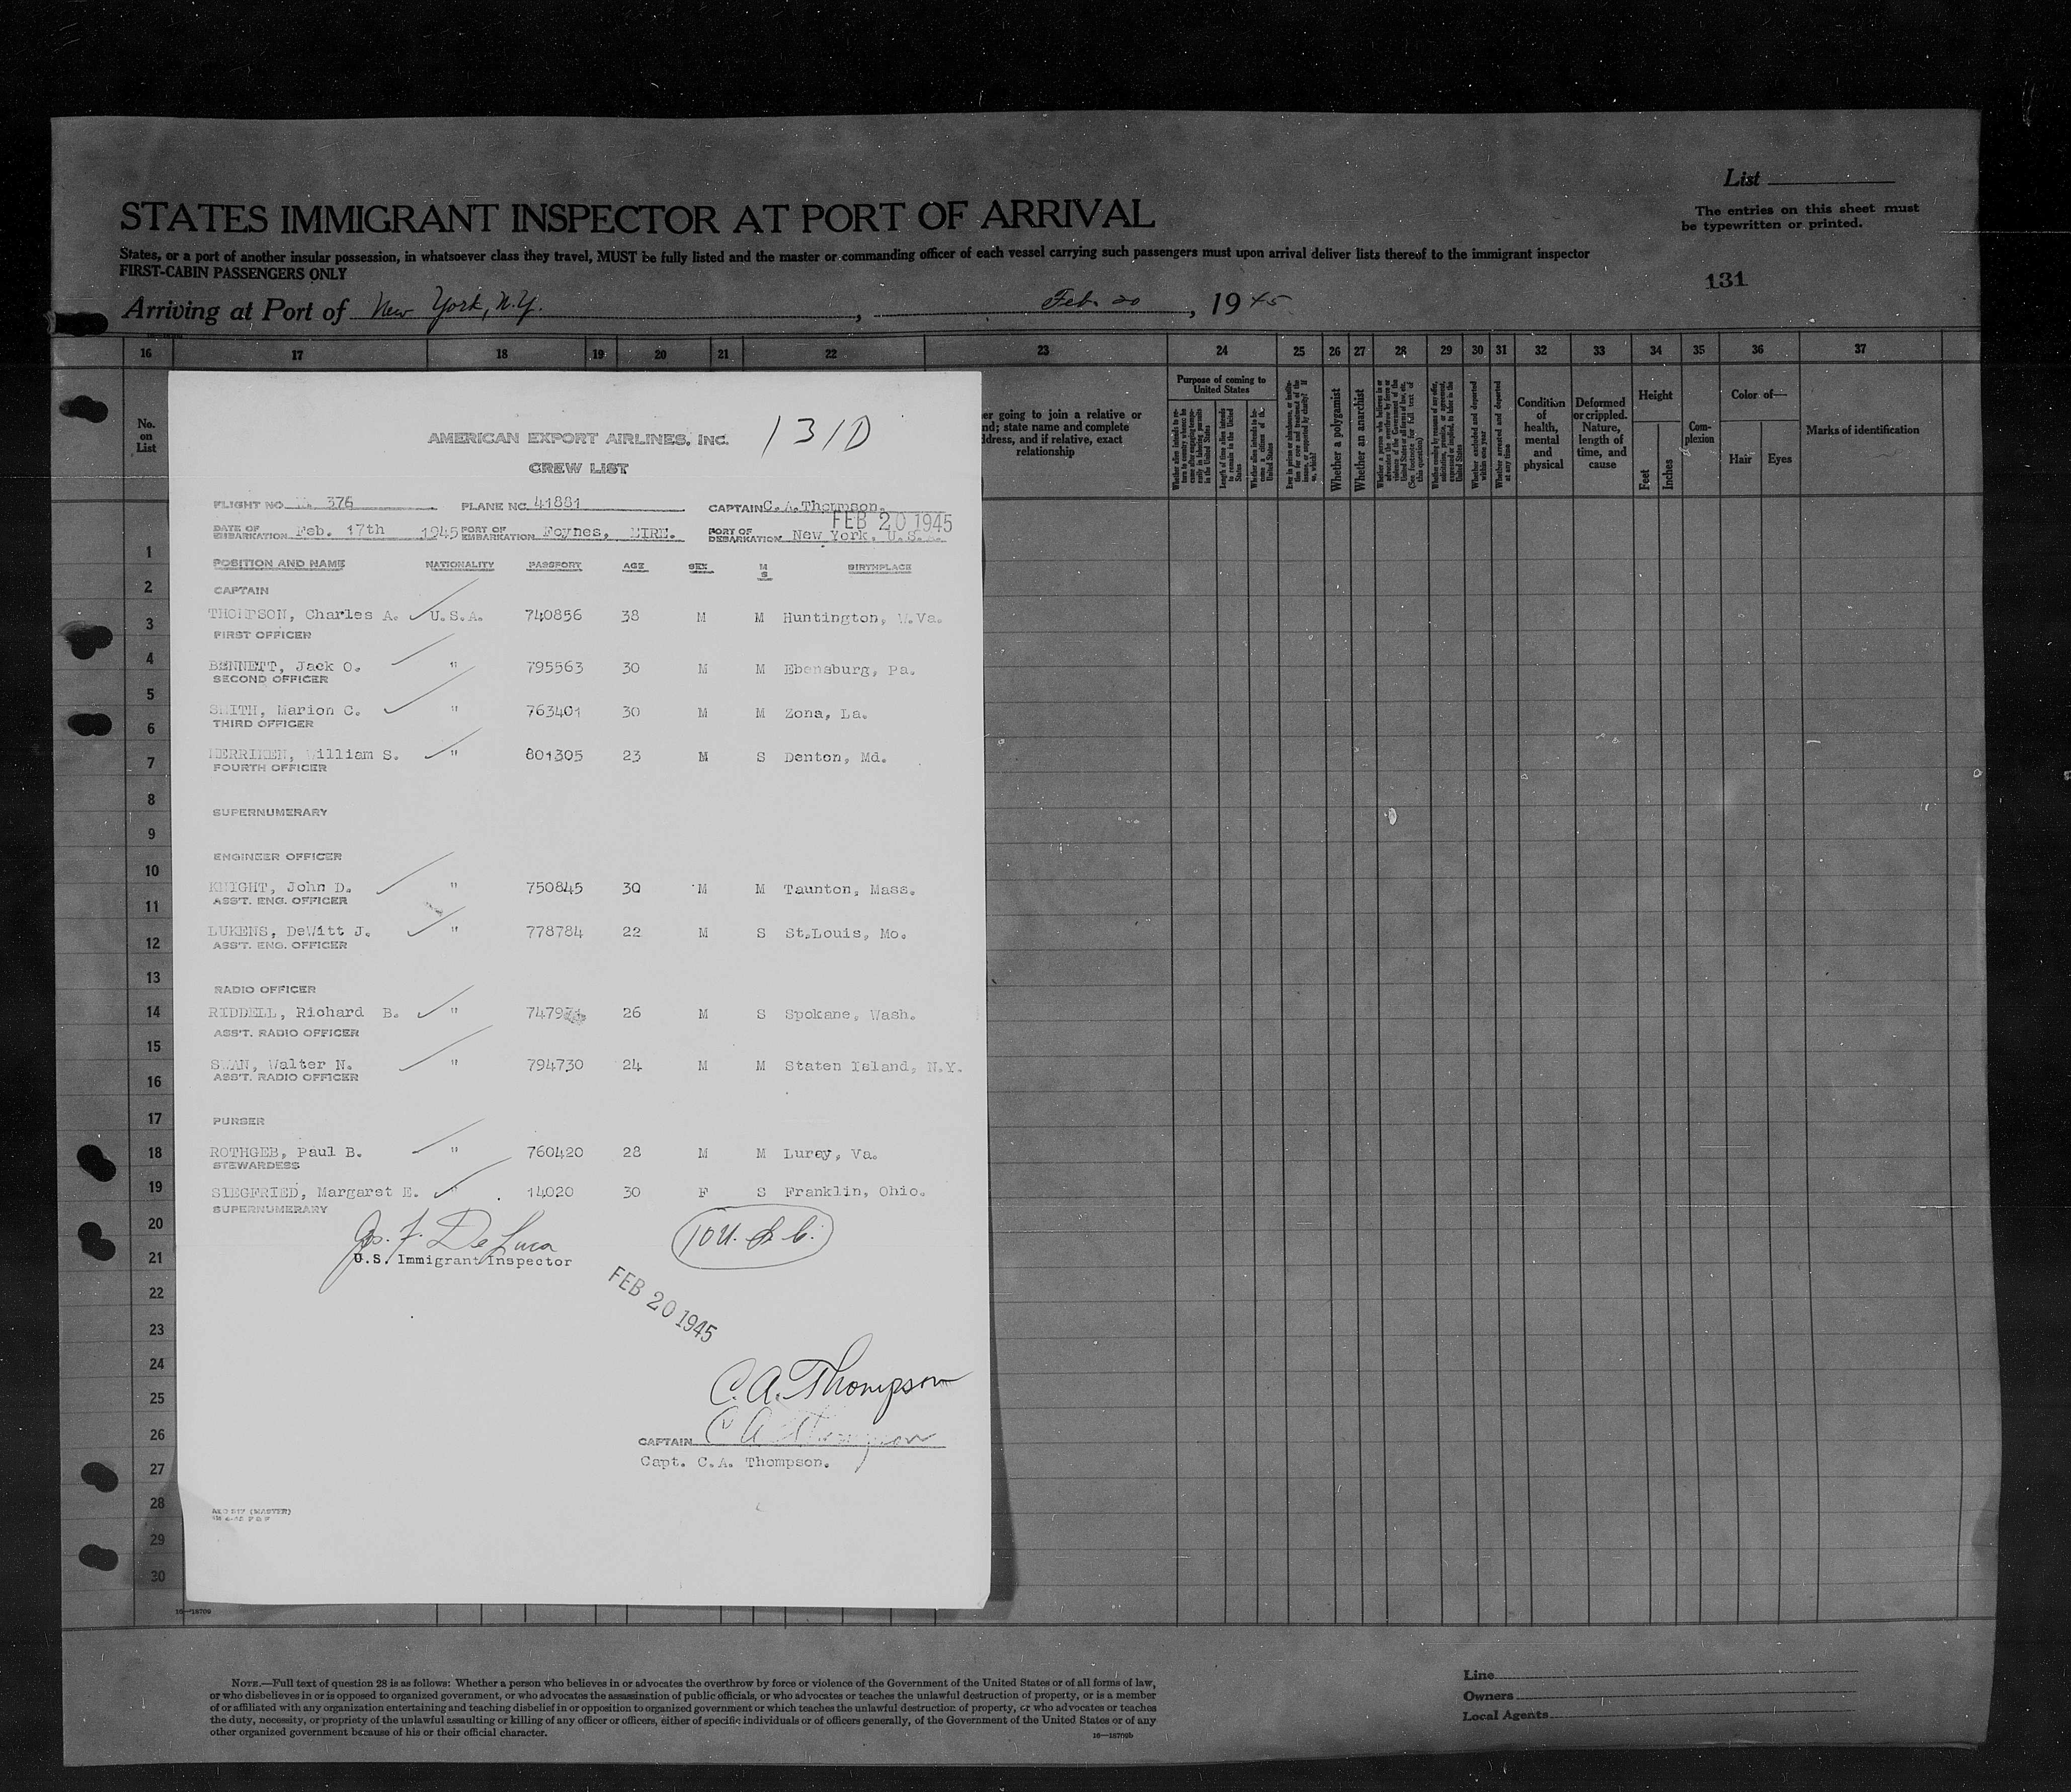 List
STATES IMMIGRANT INSPECTOR AT PORT OF ARRIVAL
The entries on this sheet must
be typewritten or printed.
States, or a port of another insular possession, in whatsoever class they travel, MUST be fully listed and the master or commanding officer of each vessel carrying such passengers must upon arrival deliver lists thereof to the immigrant inspector
FIRST-CABIN PASSENGERS ONLY
131
Arriving at Port of New York, N.Y. , Feb. 20 , 19 45
16 17 18 19 20 21 22 23 24 25 26 27 28 29 30 31 32 33 34 35 36 37
No.
on
List
er going to join a relative or
nd; state name and complete
ddress, and if relative, exact
relationship
Purpose of coming to
United States
Whether a polygamist
Whether an anarchist
Condition
of
health,
mental
and
physical
Deformed
or crippled.
Nature,
length of
time, and
cause
Height
Feet
Inches
Com-
plexion
Color of—
Hair
Eyes
Marks of identification
131D
AMERICAN EXPORT AIRLINES, INC.
CREW LIST
FLIGHT NO 376 PLANE NO. 41881 CAPTAIN C.A.Thompson.
FEB 20 1945
DATE OF EMBARKATION Feb. 17th 1945 PORT OF EMBARKATION Foynes, EIRE. PORT OF DEBARKATION New York, U.S.A.
POSITION AND NAME NATIONALITY PASSPORT AGE SEX M S BIRTHPLACE
CAPTAIN
THOMPSON, Charles A. U.S.A. 740856 38 M M Huntington, W.Va.
FIRST OFFICER
BENNETT, Jack O. " 795563 30 M M Ebensburg, Pa.
SECOND OFFICER
SMITH, Marion C. " 763401 30 M M Zona, La.
THIRD OFFICER
MERRIKEN, William S. " 801305 23 M S Denton, Md.
FOURTH OFFICER
SUPERNUMERARY
ENGINEER OFFICER
KNIGHT, John D. " 750845 30 M M Taunton, Mass.
ASS'T. ENG. OFFICER
LUKENS, DeWitt J. " 778784 22 M S St.Louis, Mo.
ASS'T. ENG. OFFICER
RADIO OFFICER
RIDDELL, Richard B. " 26 M S Spokane, Wash.
ASS'T. RADIO OFFICER
SWAN, Walter N. " 794730 24 M M Staten Island, N.Y.
ASS'T. RADIO OFFICER
PURSER
ROTHGEB, Paul B. " 760420 28 M M Luray, Va.
STEWARDESS
SIEGFRIED, Margaret E. " 14020 30 F S Franklin, Ohio.
SUPERNUMERARY
Jos. F. De Luca
U.S. Immigrant Inspector
10 U.S.C.
FEB 20 1945
C.A. Thompson
CAPTAIN C A Thompson
Capt. C.A. Thompson.
1
2
3
4
5
6
7
8
9
10
11
12
13
14
15
16
17
18
19
20
21
22
23
24
25
26
27
28
29
30
16—18709
NOTE.—Full text of question 28 is as follows: Whether a person who believes in or advocates the overthrow by force or violence of the Government of the United States or of all forms of law,
or who disbelieves in or is opposed to organized government, or who advocates the assassination of public officials, or who advocates or teaches the unlawful destruction of property, or is a member
of or affiliated with any organization entertaining and teaching disbelief in or opposition to organized government or which teaches the unlawful destruction of property, or who advocates or teaches
the duty, necessity, or propriety of the unlawful assaulting or killing of any officer or officers, either of specific individuals or of officers generally, of the Government of the United States or of any
other organized government because of his or their official character.
16—18709b
Line
Owners
Local Agents